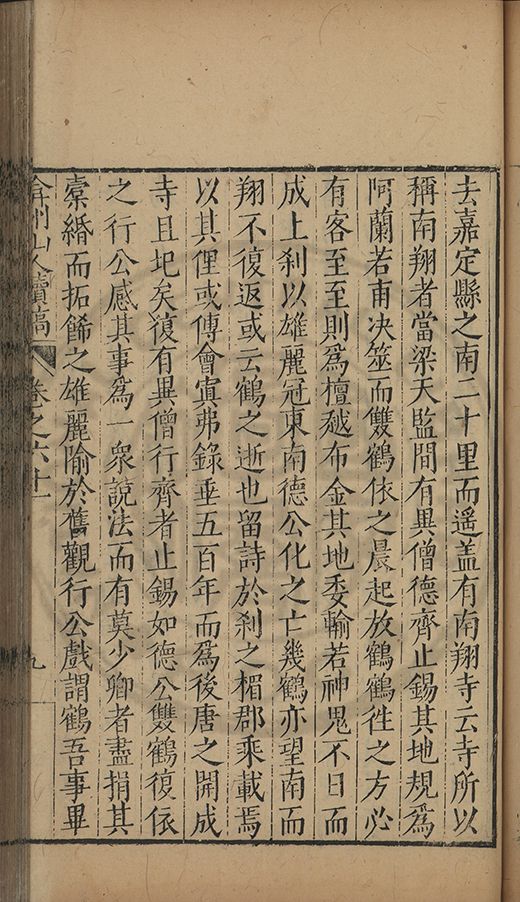 去嘉定縣之南二十里而遥盖有南翔寺云寺所以
稱南翔者當梁天監間有異僧德齊止錫其地規爲
阿蘭若甫决筮而雙鶴依之晨起放鶴鶴徃之方必
有客至至則爲檀越布金其地委輸若神鬼不日而
成上刹以雄麗冠東南德公化之亡幾鶴亦望南而
翔不復返或云鶴之逝也留詩於刹之楣郡乘載焉
以其俚或傳會寘弗錄垂五百年而爲後唐之開成
寺且圯矣復有異僧行齊者止錫如德公雙鶴復依
之行公感其事爲一衆說法而有莫少卿者盡捐其
橐緡而拓餙之雄麗隃於舊觀行公戲謂鶴吾事畢
弇州山人續稿 卷之六十一 九